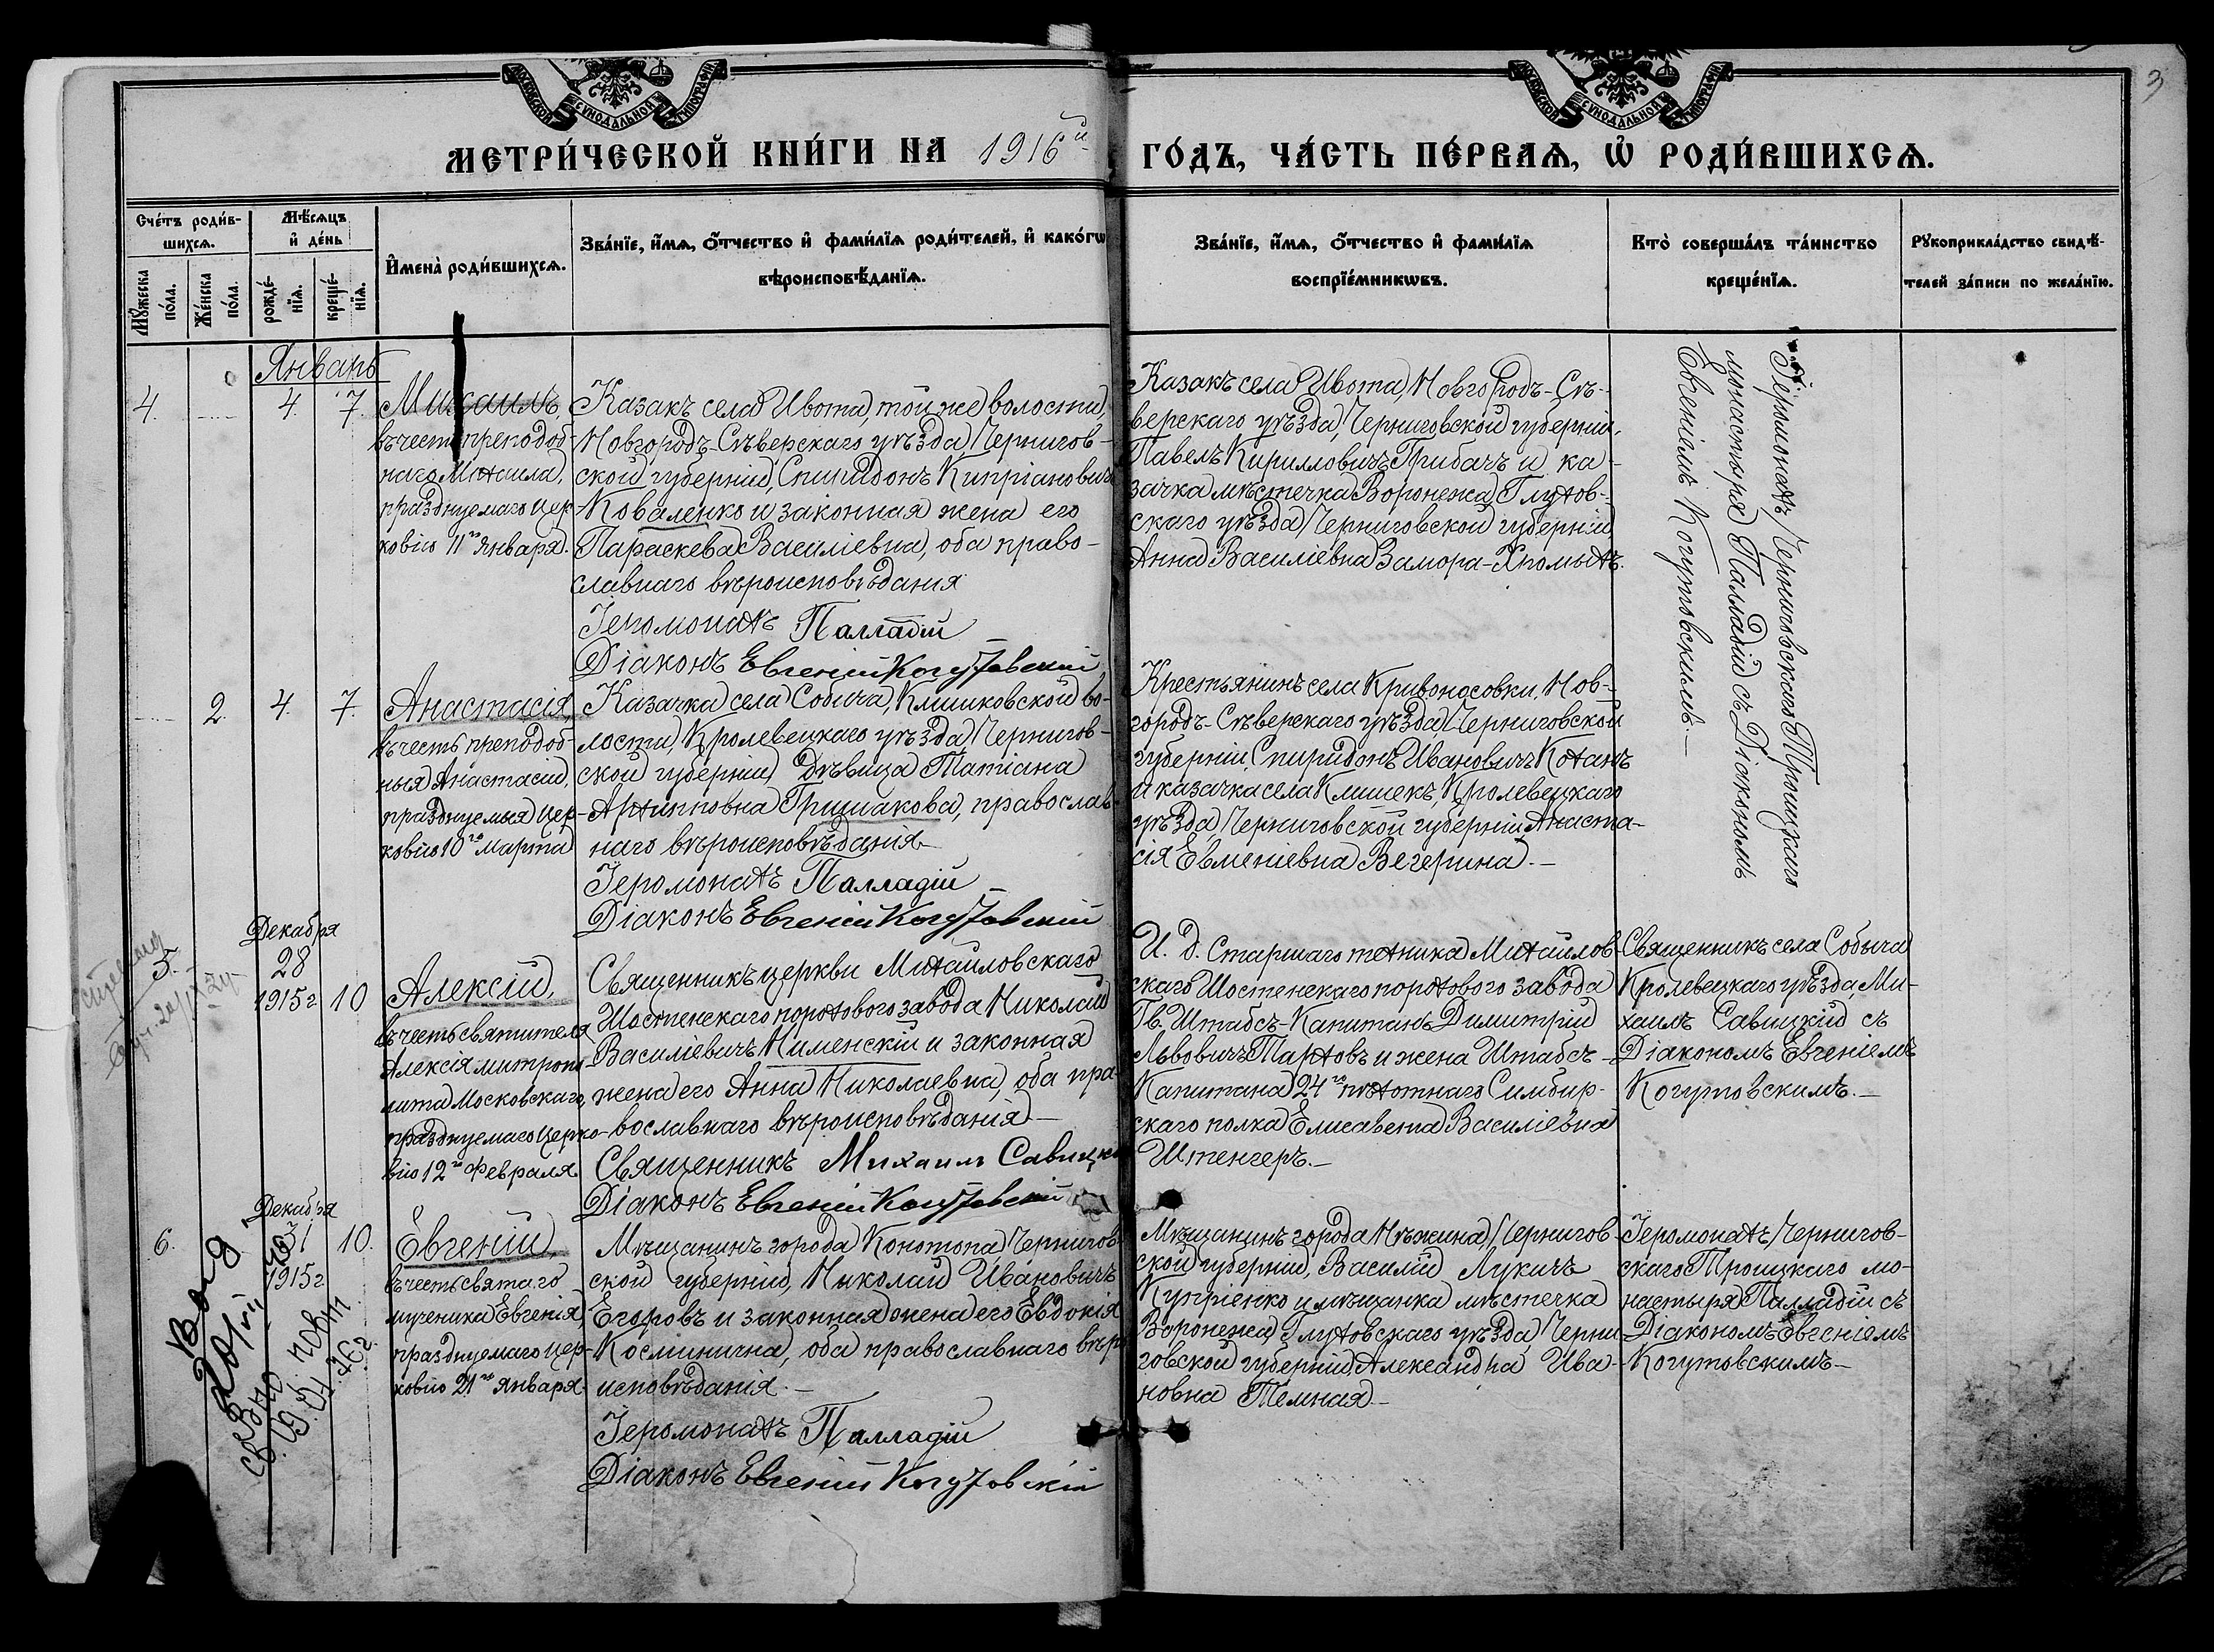 3
МОСКОВСКОЙ СУНОДАЛЬНОЙ ТИПОГРАФІИ
МОСКОВСКОЙ СУНОДАЛЬНОЙ ТИПОГРАФІИ
МЕТРИ́ЧЕСКОЙ КНИ́ГИ НА 1916й ГО́ДЪ, ЧА́СТЬ ПЕ́РВАѦ, Ѡ҆ РОДИ́ВШИХСѦ.
Сче́тъ роди́в-
шихсѧ.
Мꙋ́жеска
по́ла.
Же́нска
по́ла.
Мѣ́сѧцъ
и҆ де́нь
рожде́-
нїѧ.
креще́-
нїѧ.
И҆мена̀ роди́вшихсѧ.
Зва́нїе, и҆́мѧ, ѻ҆́тчество и҆ фами́лїѧ роди́телей, и҆ како́гѡ
вѣроисповѣ́данїѧ.
Зва́нїе, и҆́мѧ, ѻ҆́тчество и҆ фами́лїѧ
воспрїе́мникѡвъ.
Кто̀ соверша́лъ та́инство
креще́нїѧ.
Рꙋкоприкла́дство свидѣ́-
телей за́писи по жела́нїю.
Январь
4. 4. 7.
Михаилъ,
въ честь преподоб-
наго Михаила,
празднуемаго Цер-
ковію 11го января.
Казакъ села Ивота, той же волости,
Новгородъ-Сѣверскаго уѣзда, Чернигов-
ской губерніи, Спиридонъ Кипріановичъ
Коваленко и законная жена его
Параскева Василіевна, оба право-
славнаго вѣроисповѣданія
Іеромонахъ Палладій
Діаконъ Евгеній Когутовскій
Казакъ села Ивота, Новгородъ-Сѣ-
верскаго уѣзда, Черниговской губерніи,
Павелъ Кирилловичъ Грибачъ и ка-
зачка мѣстечка Воронежа, Глухов-
скаго уѣзда, Черниговской губерніи
Анна Василіевна Замора-Хромыхъ.
Іеромонахъ Черниговскаго Троицкаго
монастыря Палладій съ Діакономъ
Евгеніемъ Когутовскимъ.-
2. 4. 7.
Анастасія,
въ честь преподоб-
ныя Анастасіи,
празднуемыя Цер-
ковію 10го Марта
Казачка села Собича, Клишковской во-
лости, Кролевецкаго уѣзда, Чернигов-
ской губерніи, дѣвица Татіана
Архипповна Гришакова, православ-
наго вѣроисповѣданія.
Іеромонахъ Палладій
Діаконъ Евгеній Когутовскій
Крестьянинъ села Кривоносовки, Нов-
городъ-Сѣверскаго уѣзда, Черниговской
губерніи, Спиридонъ Ивановичъ Коханъ
и казачка села Клишекъ, Кролевецкаго
уѣзда, Черниговской губерніи, Анаста-
сія Евменіевна Вегерина.-
5. Декабря
28
1915г 10
Алексій,
въ честь святителя
Алексія митропо-
лита Московскаго,
празднуемаго Церко-
вію 12го Февраля.
Священникъ церкви Михайловскаго
Шостенскаго порохового завода Николай
Василіевичъ Нименскій и законная
жена его Анна Николаевна, оба пра-
вославнаго вѣроисповѣданія-
Священникъ Михаилъ Савицкій
Діаконъ Евгеній Когутовскій
И. д. Старшаго техника Михайлов-
скаго Шостенскаго порохового завода
Гв. Штабсъ-Капитанъ Димитрій
Львовичъ Тартовъ и жена Штабсъ-
Капитана 24го пѣхотнаго Симбир-
скаго полка Елисавета Василіевна
Штенгеръ.-
Священникъ села Собыча
Кролевецкаго уѣзда, Ми-
хаилъ Савицкій съ
Діакономъ Евгеніемъ
Когутовскимъ.-
6. Декабря
31
1915г 10.
Евгеній,
въ честь святаго
мученика Евгенія,
празднуемаго Цер-
ковію 21го Января.
Мѣщанинъ города Конотопа, Чернигов-
ской губерніи, Николай Ивановичъ
Егоровъ и законная жена его Евдокія
Косминична, оба православнаго вѣро-
исповѣданія.-
Іеромонахъ Палладій
Діаконъ Евгеній Когутовскій
Мѣщанинъ города Нѣжина, Чернигов-
ской губерніи, Василій Лукичъ
Купріенко и мѣщанка мѣстечка
Воронежа, Глуховскаго уѣзда, Черни-
говской губерніи, Александра Ива-
новна Темная.-
Іеромонахъ Чернигов-
скаго Троицкаго мо-
настыря Палладій съ
Діакономъ Евгеніемъ
Когутовскимъ-